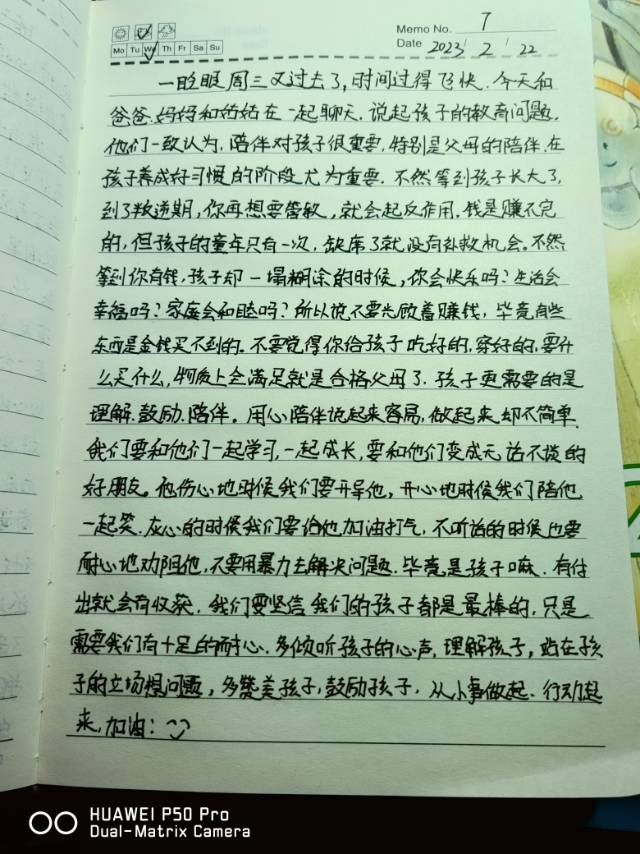 Memo No. 7
Mo Tu We Th Fr Sa Su
Date 2023 / 2 / 22
一眨眼周三又过去了,时间过得飞快.今天和
爸爸.妈妈和姑姑在一起聊天.说起孩子的教育问题.
他们一致认为,陪伴对孩子很重要,特别是父母的陪伴.在
孩子养成好习惯的阶段尤为重要.不然等到孩子长大了,
到了叛逆期,你再想要管教,就会起反作用.钱是赚不完
的,但孩子的童年只有一次,缺席了就没有补救机会。不然
等到你有钱,孩子却一塌糊涂的时候,你会快乐吗?生活会
幸福吗?家庭会和睦吗?所以说不要光顾着赚钱,毕竟有些
东西是金钱买不到的。不要觉得你给孩子吃好的,穿好的,要什
么买什么,物质上会满足就是合格父母了.孩子更需要的是
理解.鼓励.陪伴。用心陪伴说起来容易,做起来却不简单.
我们要和他们一起学习,一起成长,要和他们变成无话不谈的
好朋友。他伤心地时候我们要开导他,开心地时侯我们陪他
一起笑.灰心的时候我们要给他加油打气,不听话的时候也要
耐心地劝阻他,不要用暴力去解决问题.毕竟是孩子嘛.有付
出就会有收获.我们要坚信我们的孩子都是最棒的,只是
需要我们有十足的耐心.多倾听孩子的心声,理解孩子,站在孩
子的立场想问题,多赞美孩子,鼓励孩子.从小事做起.行动起
来,加油!
HUAWEI P50 Pro
Dual-Matrix Camera